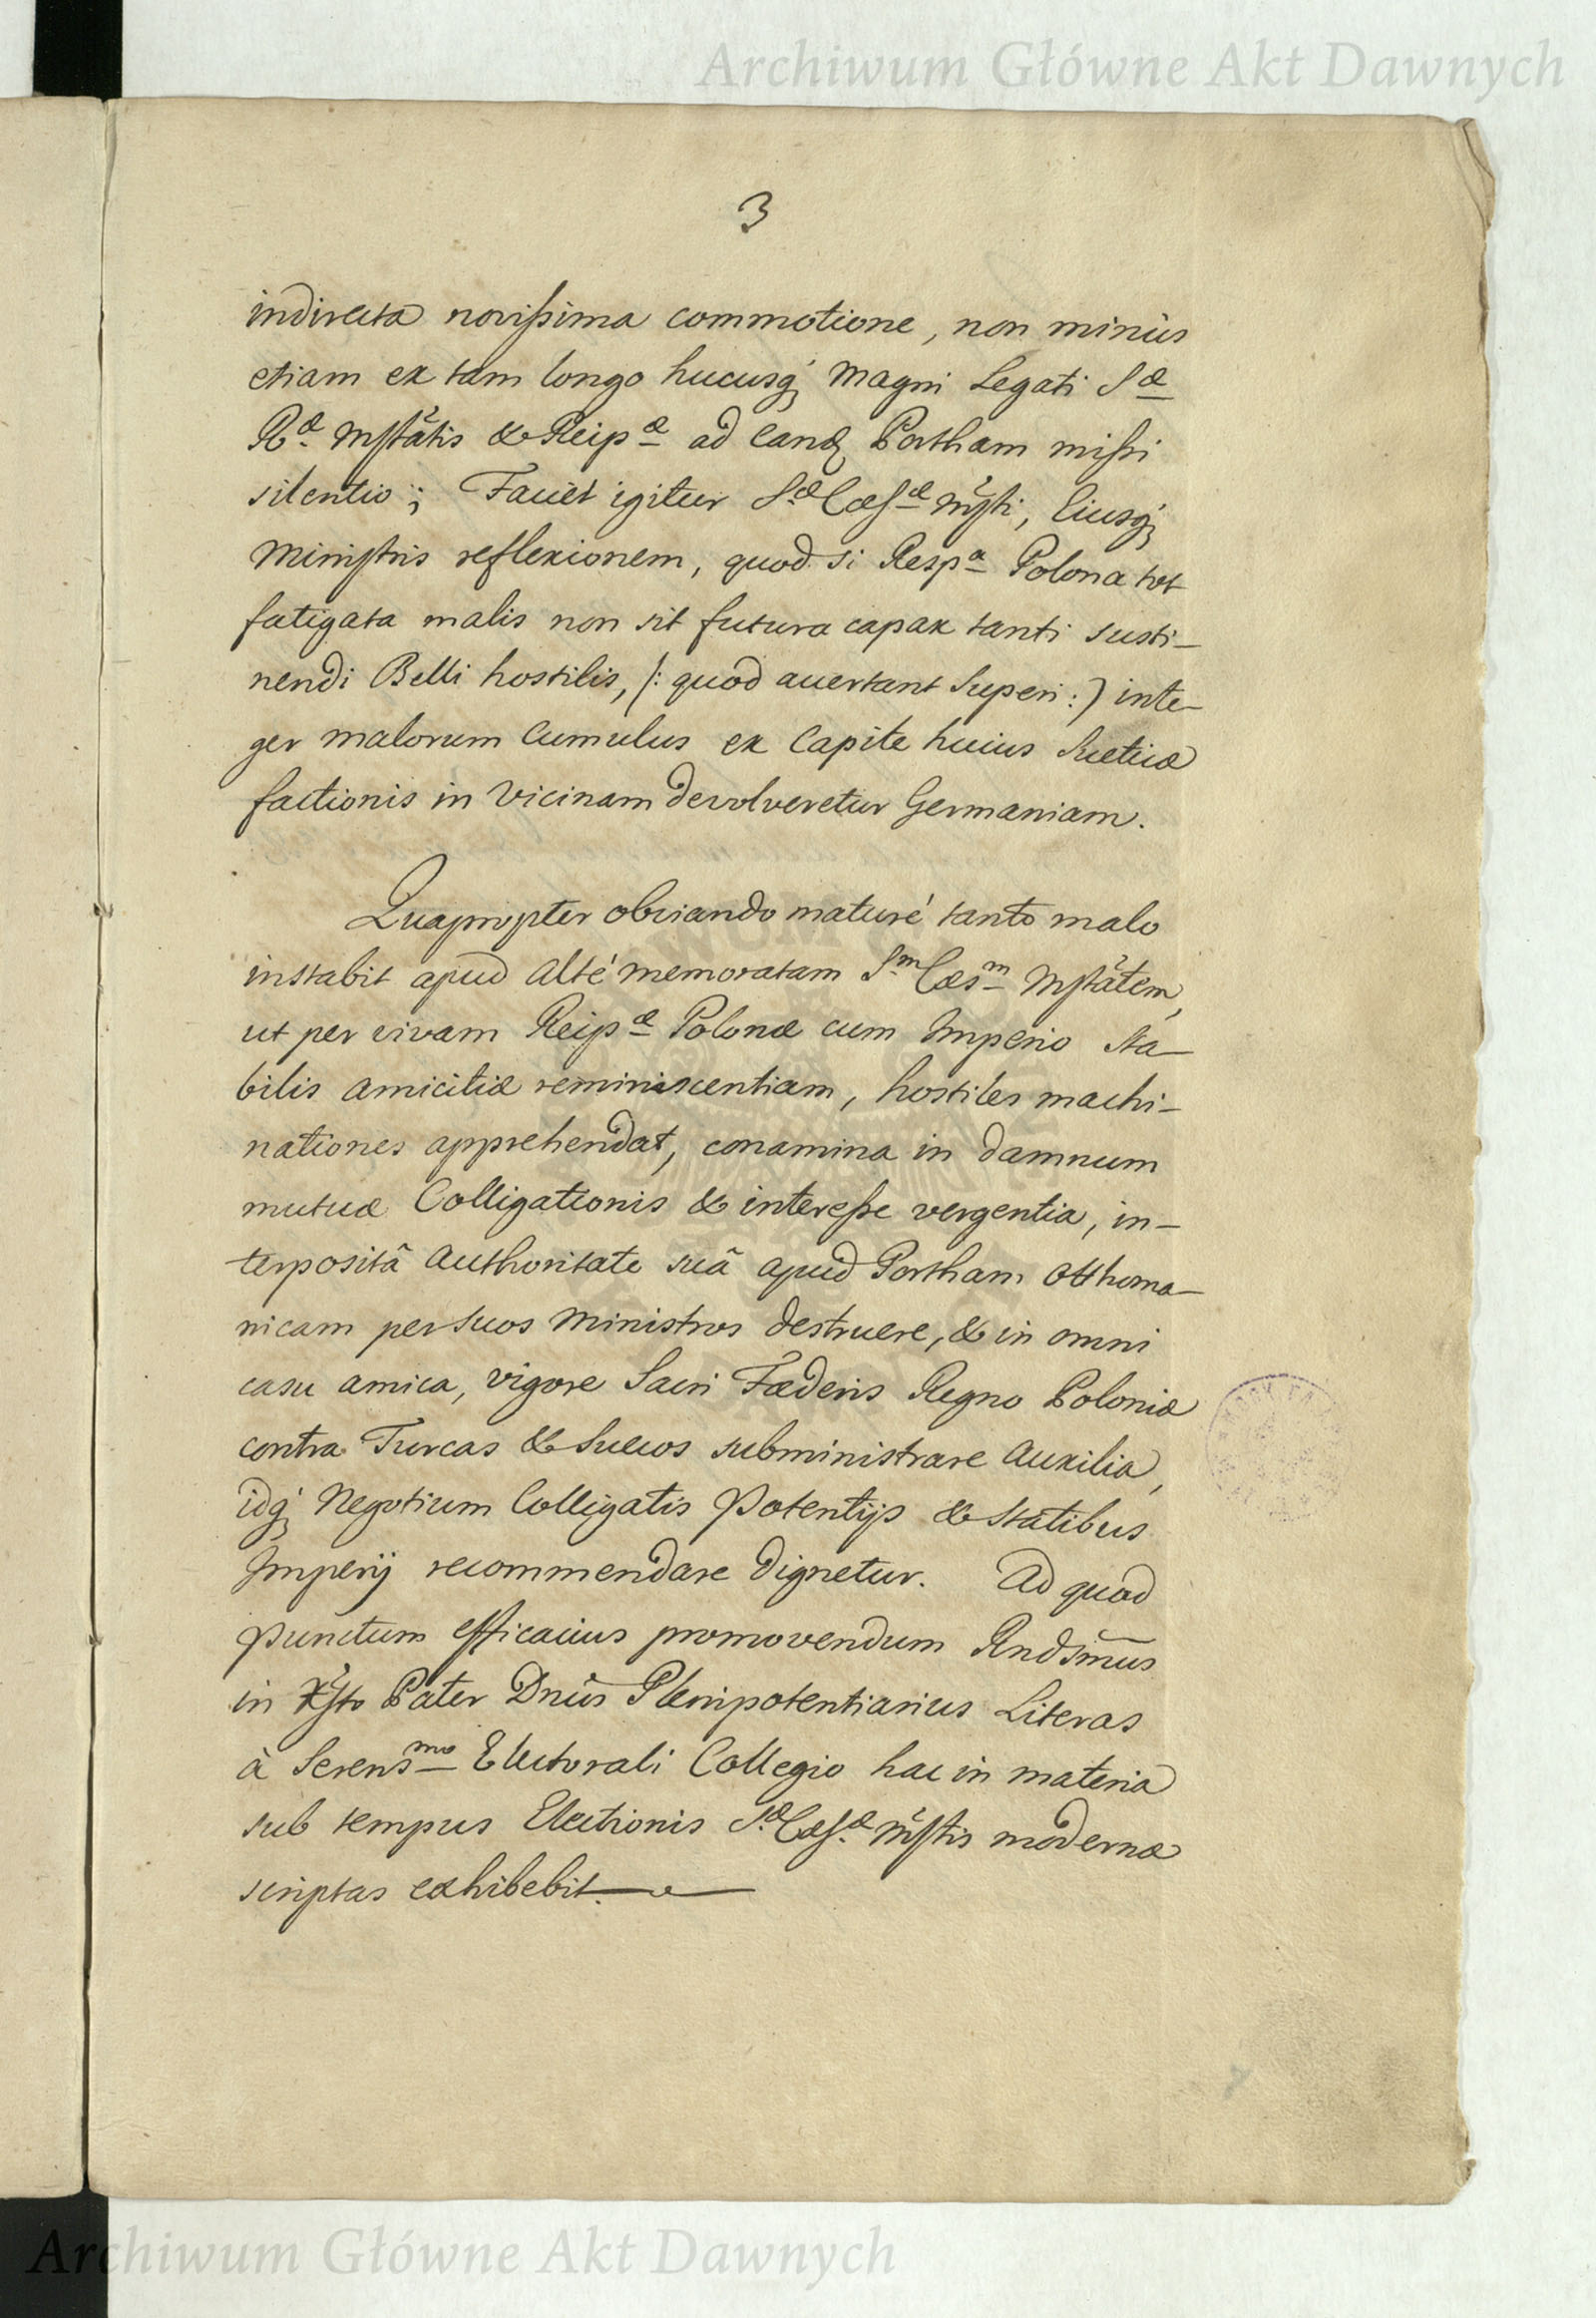 Archiwum Główne Akt Dawnych
3
indirecta novißima commotione, non minùs
etiam ex tam longo hucusq́; Magni Legati S.æ
R.æ Mstãtis & Reip.æ ad eand. Portham mißi
silentio; Faciet igitur S.æ Cæs.æ Mṡti, Eiusq́;
Ministris reflexionem, quod si Resp.a Polona tot
fatigata malis non sit futura capax tanti susti-
nendi Belli hostilis, /: quod avertant Superi :/ inte-
ger malorum Cumulus ex Capite huius Sueticæ
factionis in Vicinam devolveretur Germaniam.
Quapropter obviando maturé tanto malo
instabit apud Alté memoratam S.m Cæs.m Mstãtem,
ut per vivam Reip.æ Polonæ cum Imperio sta-
bilis amicitiæ reminiscentiam, hostiles machi-
nationes apprehendat, conamina in damnum
mutuæ Colligationis & intereße vergentia, in-
terpositâ Authoritate suâ apud Portham Otthoma-
nicam per suos Ministros destruere, & in omni
casu amica, vigore Sacri Fæderis Regno Poloniæ
contra Turcas & Suecos subministrare Auxilia,
idq́; Negotium Colligatis Potentijs & Statibus
Imperij recommendare dignetur. Ad quod
punctum efficacius promovendum Rndsm̃us
in Xs̃to Pater Dnũs Plenipotentiarius Literas
à Serens.mo Electorali Collegio hac in materia
sub tempus Electionis S.æ Cæs.æ Ms̃tis modernæ
scriptas exhibebit.
Archiwum Główne Akt Dawnych